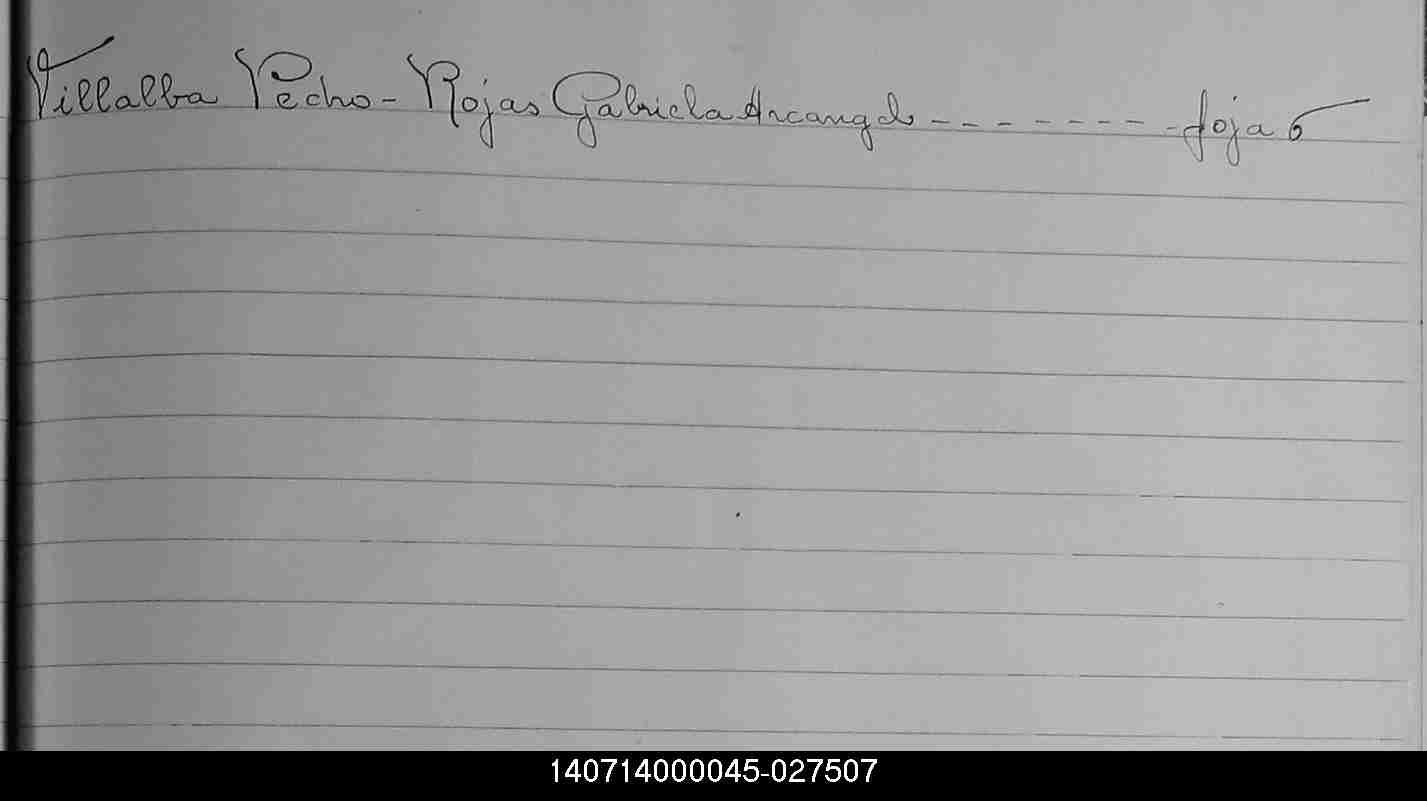 Villalba Pedro - Rojas Gabriela Arcangela - - - - - - - - foja 6
140714000045-027507